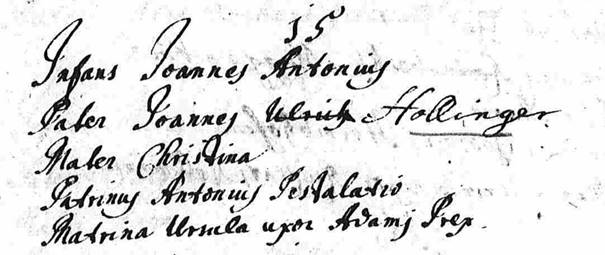 15
Infans Joannes Antonius
Pater Joannes Ulrich Hollinger
Mater Christina
Patrinus Antonius Pestalatio
Matrina Ursula uxor Adamj Prex